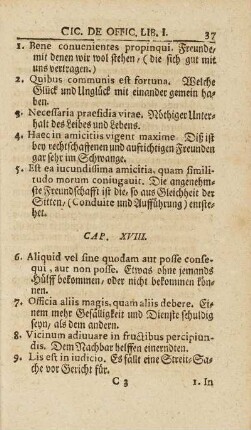 CIC. DE OFFIC. LIB. I. 37
1. Bene conuenientes propinqui. Freunde,
mit denen wir wol stehen, (die sich gut mit
uns vertragen.)
2. Quibus communis est fortuna. Welche
Glück und Unglück mit einander gemein ha-
ben.
3. Necessaria praesidia vitae. Nöthiger Unter-
halt des Leibes und Lebens.
4. Haec in amicitiis vigent maxime. Diß ist
bey rechtschaffenen und aufrichtigen Freunden
gar sehr im Schwange.
5. Est ea iucundissima amicitia, quam simili-
tudo morum coniugauit. Die angenehm-
ste Freundschafft ist die, so aus Gleichheit der
Sitten, (Conduite und Aufführung) entste-
het.
CAP. XVIII.
6. Aliquid vel sine quodam aut posse conse-
qui, aut non posse. Etwas ohne jemands
Hülff bekommen, oder nicht bekommen kön-
nen.
7. Officia aliis magis, quam aliis debere. Ei-
nem mehr Gefälligkeit und Dienste schuldig
seyn, als dem andern.
8. Vicinum adiuuare in fructibus percipiun-
dis. Dem Nachbar helffen einerndten.
9. Lis est in iudicio. Es fällt eine Streit-Sa-
che vor Gericht für.
C 3 1. In